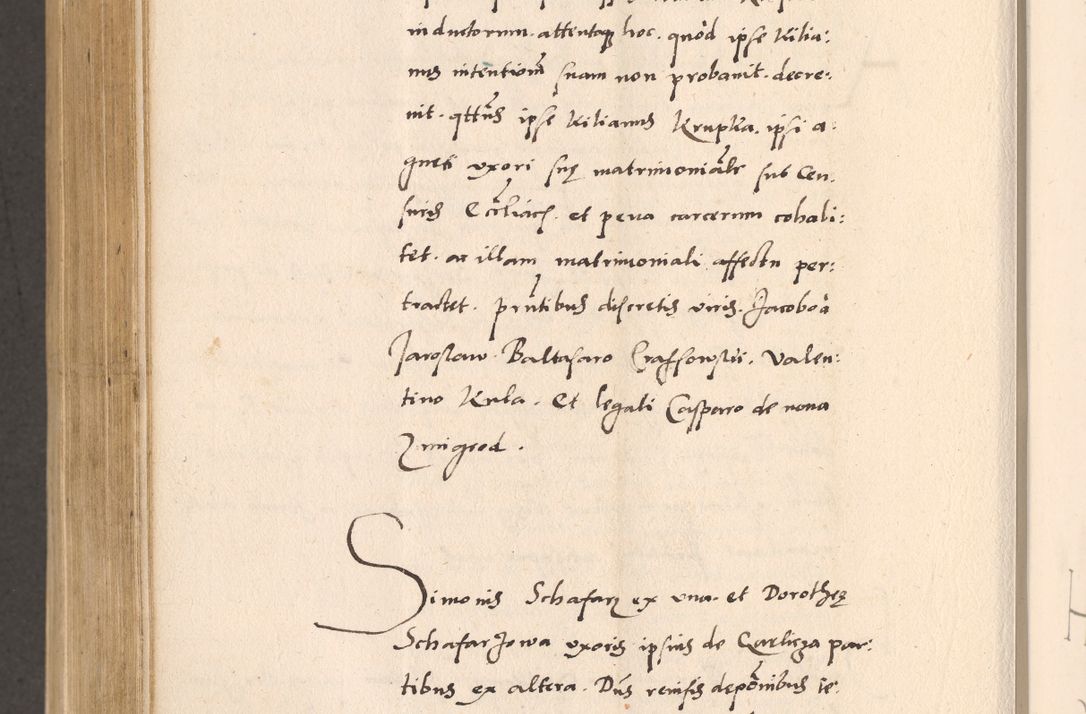 inductorum. attentaq hoc. quod ipse Kilia:
nus intentionē suam non probauit. decre:
uit. qttūs ipse Kilianus Krupka. ipsi a:
gneti uxori suę matrimonialr sub Cen.
suris Ecclīacis. et pena carcerum cohabi:
tet. ac illam matrimoniali affectu per:
tractet. pn̄tibus discretis viris. Jacobo a
Jaroslaw. Baltasaro Valen:
tino Kula. Et legali Casparo de noua
Zmigrod.
Simonis Schafarz ex una. et Dorotheę
Schafarzowa uxoris ipsius de par:
tibus ex altera. Dūs reuisis depōnibus te: